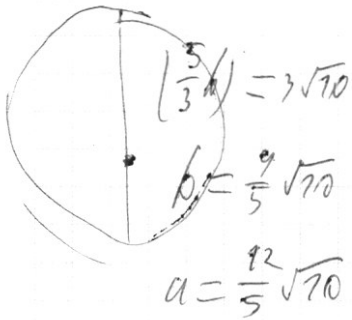 (5/3 b) = 3√10
b = 9/5 √10
a = 12/5 √10